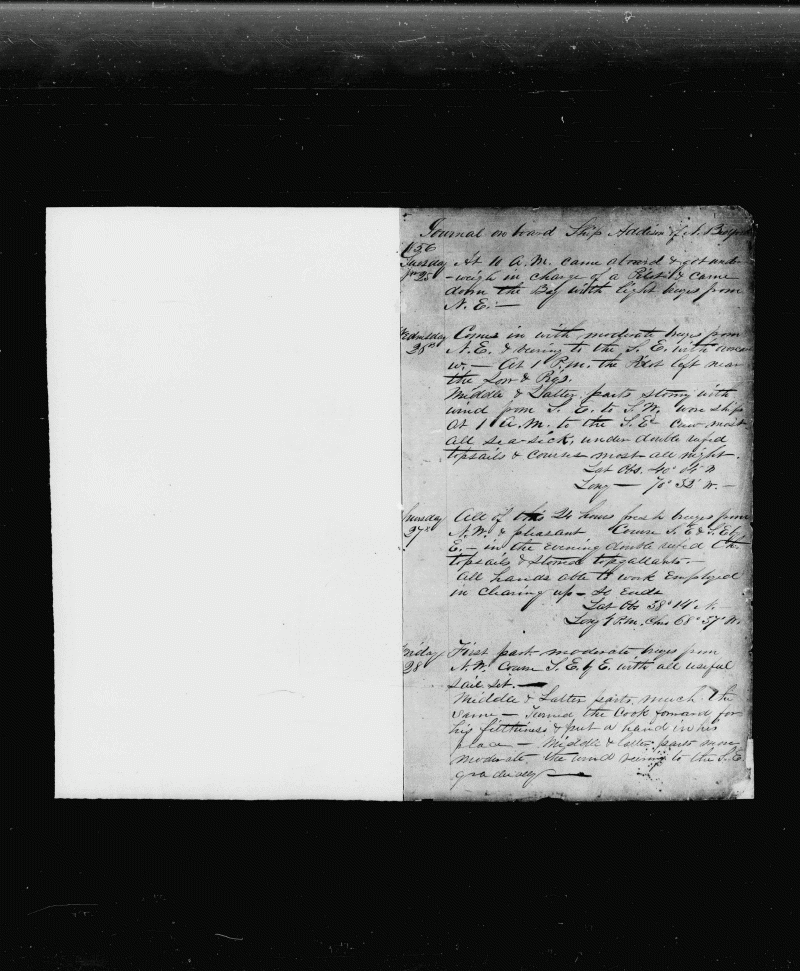 Journal on board Ship Addison of N. Bedford
1856
Tuesday At 10 A.M. came aboard & got under
25 -weigh in charge of a Pilot & came
down the Bay with light breezes from
N. E. —
Wednesday Comes in with moderate breezes from
26th N.E. & veering to the S. E. with
— At 1 P.M. the Pilot left near
the Sow & Pigs.
Middle & Latter parts stormy with
wind from S. E. to S.W. wore ship
At 1 A.M. to the S.E. crew most
all sea-sick, under double reefed
topsails & courses most all night.
Lat Obs. 40° 04' N
Long — 70° 32' W. —
Thursday All of this 24 hours fresh breezes from
27th N.W. & pleasant Course S.E. & S.E. by
E. — in the evening double reefed the
topsails & stowed topgallants. —
All hands able to work Employed
in clearing up — So Ends
Lat Obs 38° 14' N. —
Long P.M. Chro 68° 37' W.
Friday First part moderate breezes from
28 N.W. Course S.E. by E. with all useful
sail set. —
Middle & Latter parts much the
same — Turned the Cook forward for
his filthiness & put a hand in his
place — Middle & latter parts more
moderate the wind veering to the S.E.
gradually —